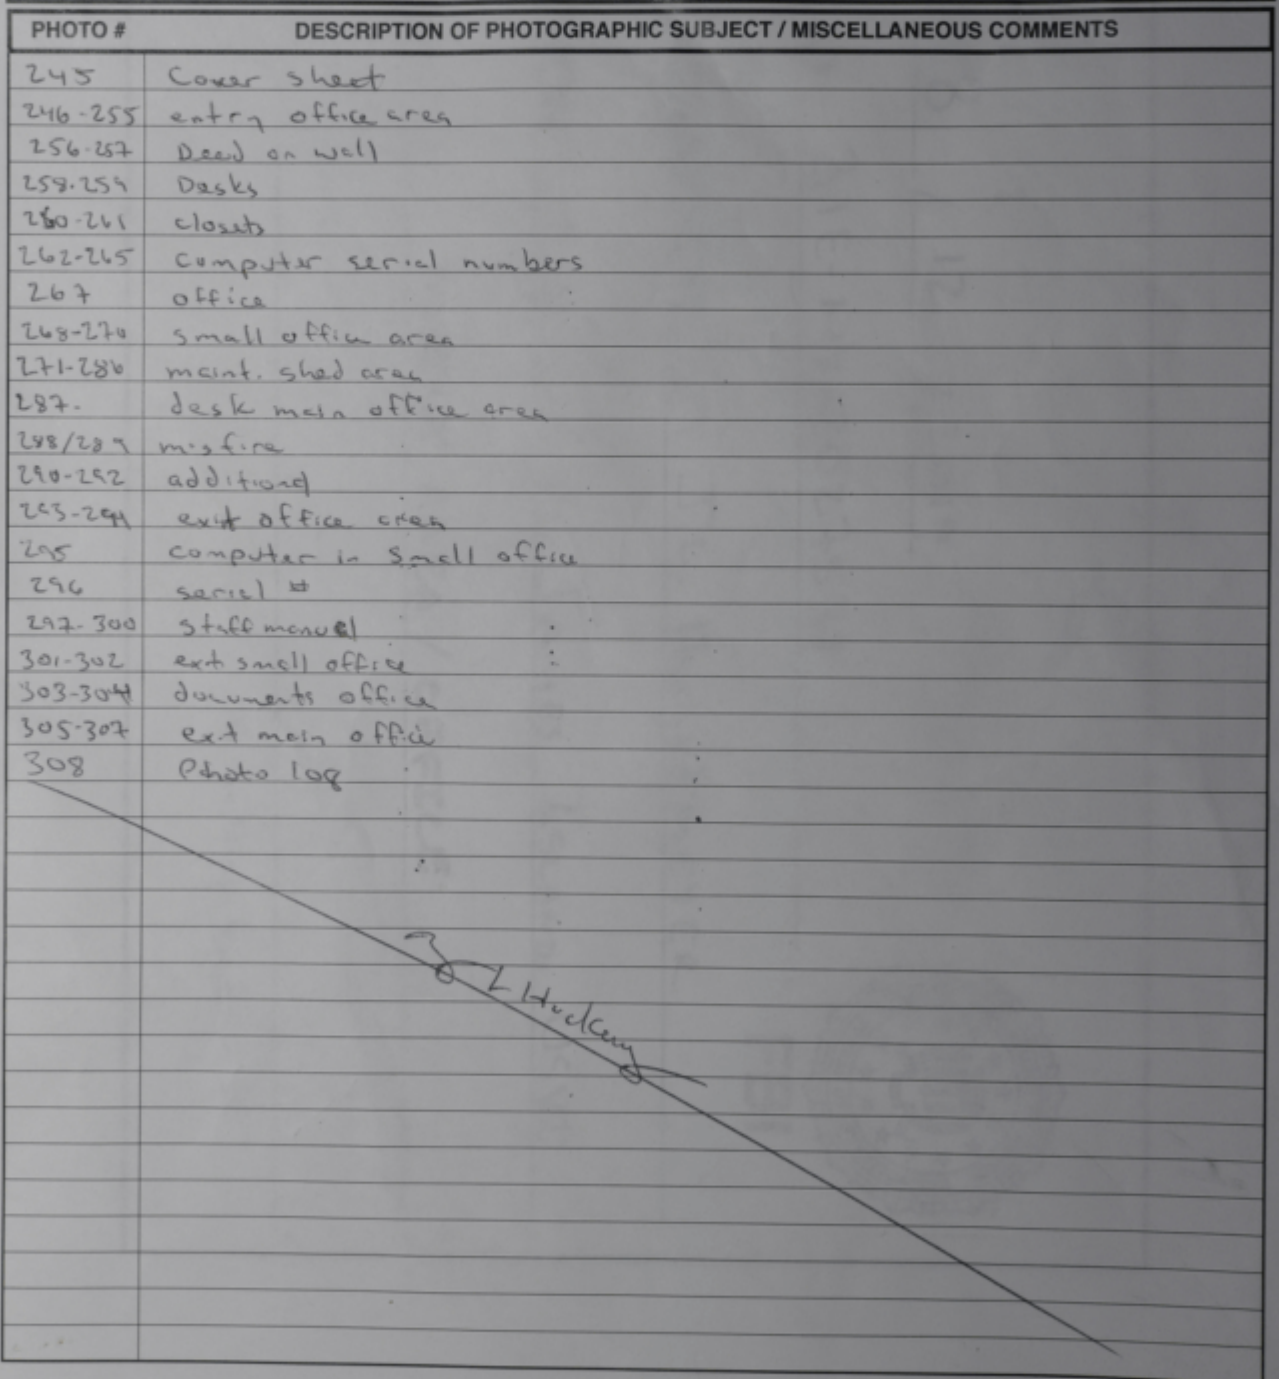 PHOTO # DESCRIPTION OF PHOTOGRAPHIC SUBJECT / MISCELLANEOUS COMMENTS
245 Cover sheet
246-255 entry office area
256-257 Deed on wall
258-259 Desks
260-261 closets
262-265 computer serial numbers
267 office
268-270 small office area
271-286 maint. shed area
287. desk main office area
288/289 misfire
290-292 additional
293-294 exit office area
295 computer in small office
296 serial #
297-300 staff manual
301-302 ext small office
303-304 documents office
305-307 ext main office
308 Photo log